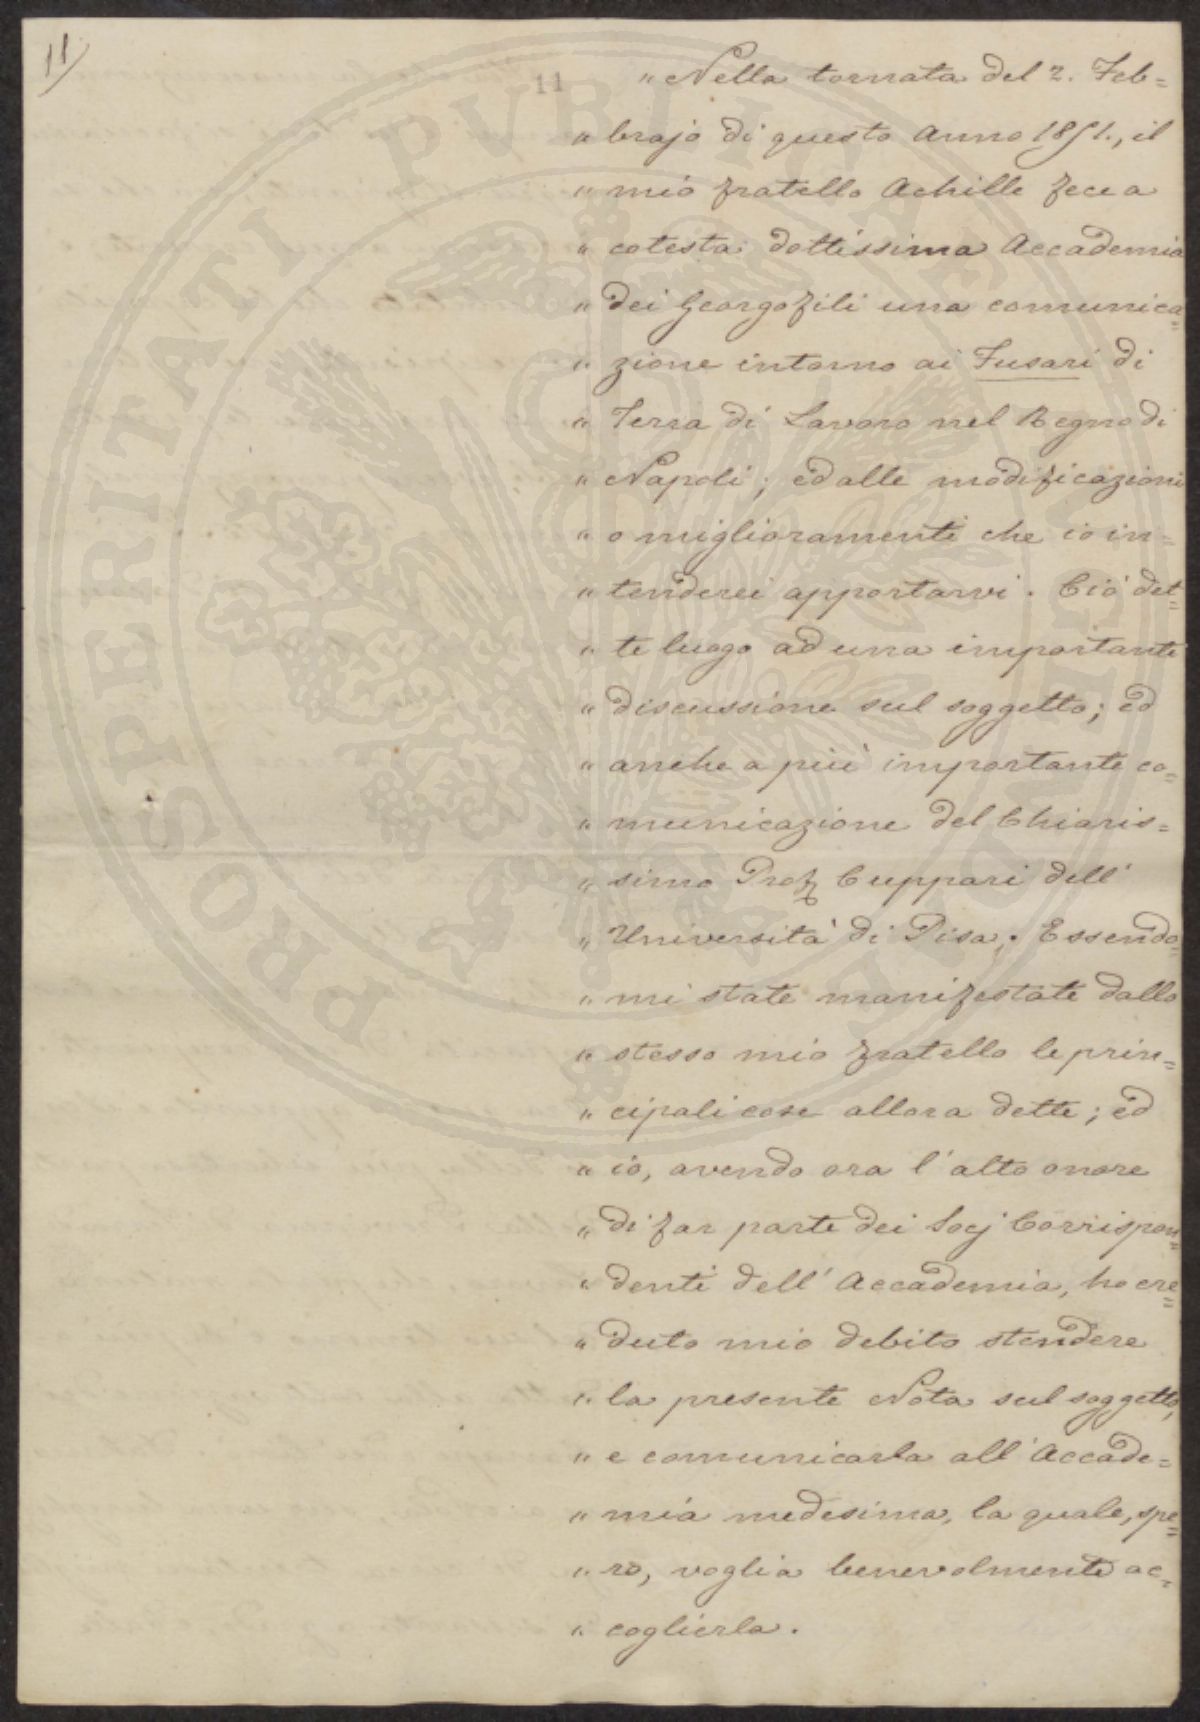 11
11
„ Nella tornata del 2. Feb=
„ brajo di questo anno 1851., il
„ mio fratello Achille fece a
„ cotesta dottissima Accademia
„ dei Georgofili una comunica=
„ zione intorno ai Fusari di
„ Terra di Lavoro nel Regno di
„ Napoli; ed alle modificazioni
„ o miglioramenti che io in=
„ tenderei apportarvi. Ciò det=
„ te luogo ad una importante
„ discussione sul soggetto; ed
„ anche a più importante co=
„ municazione del Chiaris=
„ simo Prof Cuppari dell'
„ Università di Pisa. Essendo=
„ mi state manifestate dallo
„ stesso mio fratello le prin=
„ cipali cose allora dette; ed
„ io, avendo ora l'alto onore
„ di far parte dei Socj Corrispon=
„ denti dell'Accademia, ho cre=
„ duto mio debito stendere
„ la presente Nota sul soggetto,
„ e comunicarla all'Accade=
„ mia medesima, la quale, spe=
„ ro, voglia benevolmente ac=
„ coglierla.
PROSPERITATI PVBLICAE AVGENDAE